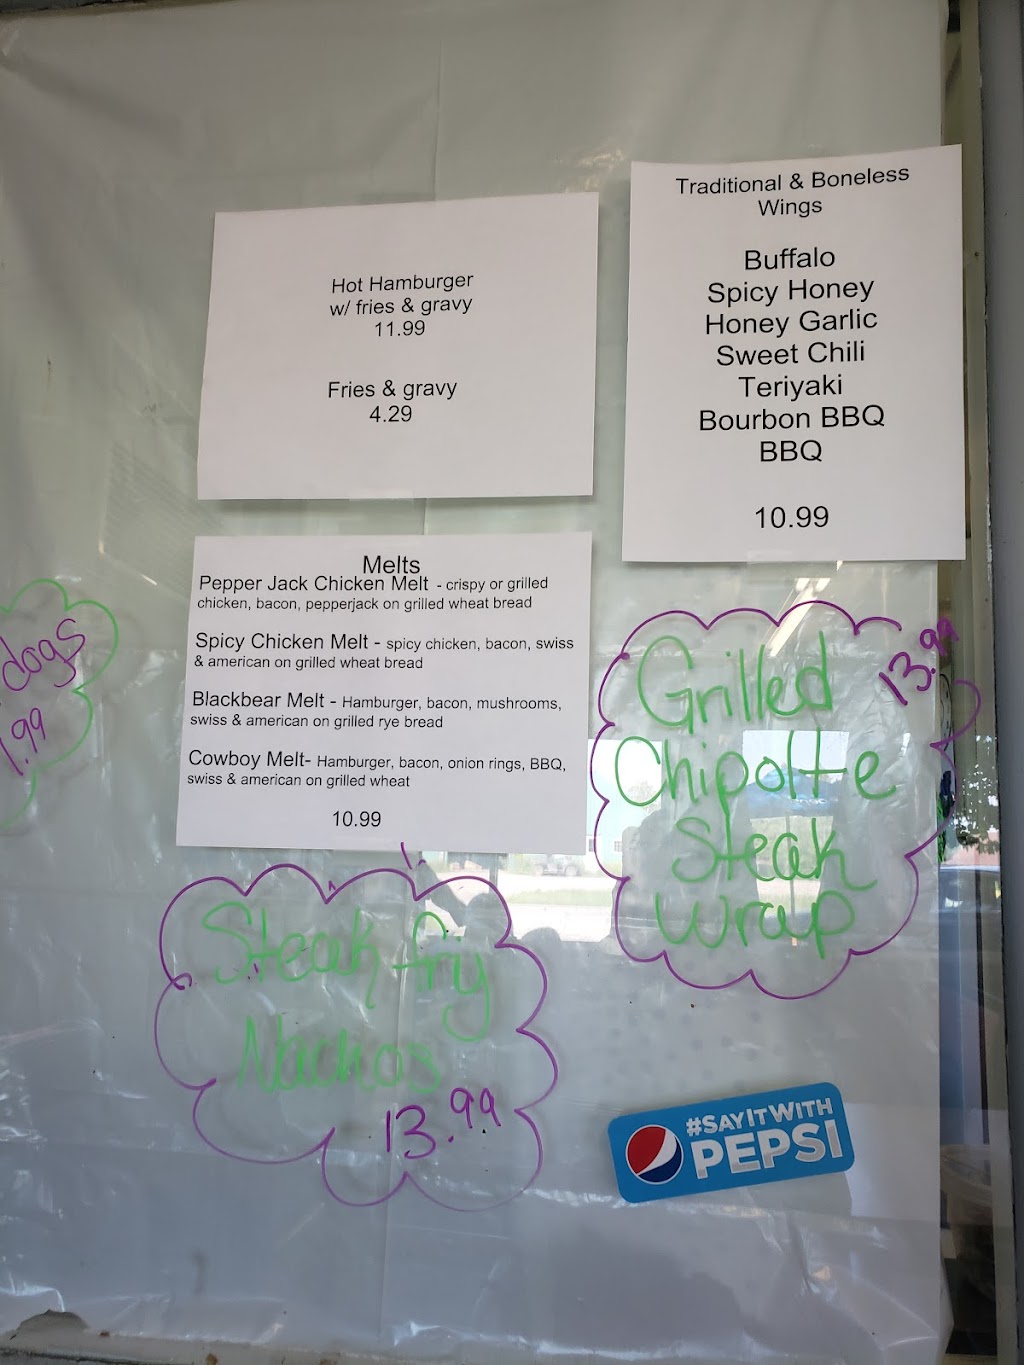 Hot Hamburger
w/ fries & gravy
11.99
Fries & gravy
4.29
Traditional & Boneless
Wings
Buffalo
Spicy Honey
Honey Garlic
Sweet Chili
Teriyaki
Bourbon BBQ
BBQ
10.99
Melts
Pepper Jack Chicken Melt - crispy or grilled
chicken, bacon, pepperjack on grilled wheat bread
Spicy Chicken Melt - spicy chicken, bacon, swiss
& american on grilled wheat bread
Blackbear Melt - Hamburger, bacon, mushrooms,
swiss & american on grilled rye bread
Cowboy Melt- Hamburger, bacon, onion rings, BBQ,
swiss & american on grilled wheat
10.99
dogs
.99
Grilled
13.99
Chipolte
Steak
Wrap
Steak fry
Nachos
13.99
#SAYITWITH
PEPSI